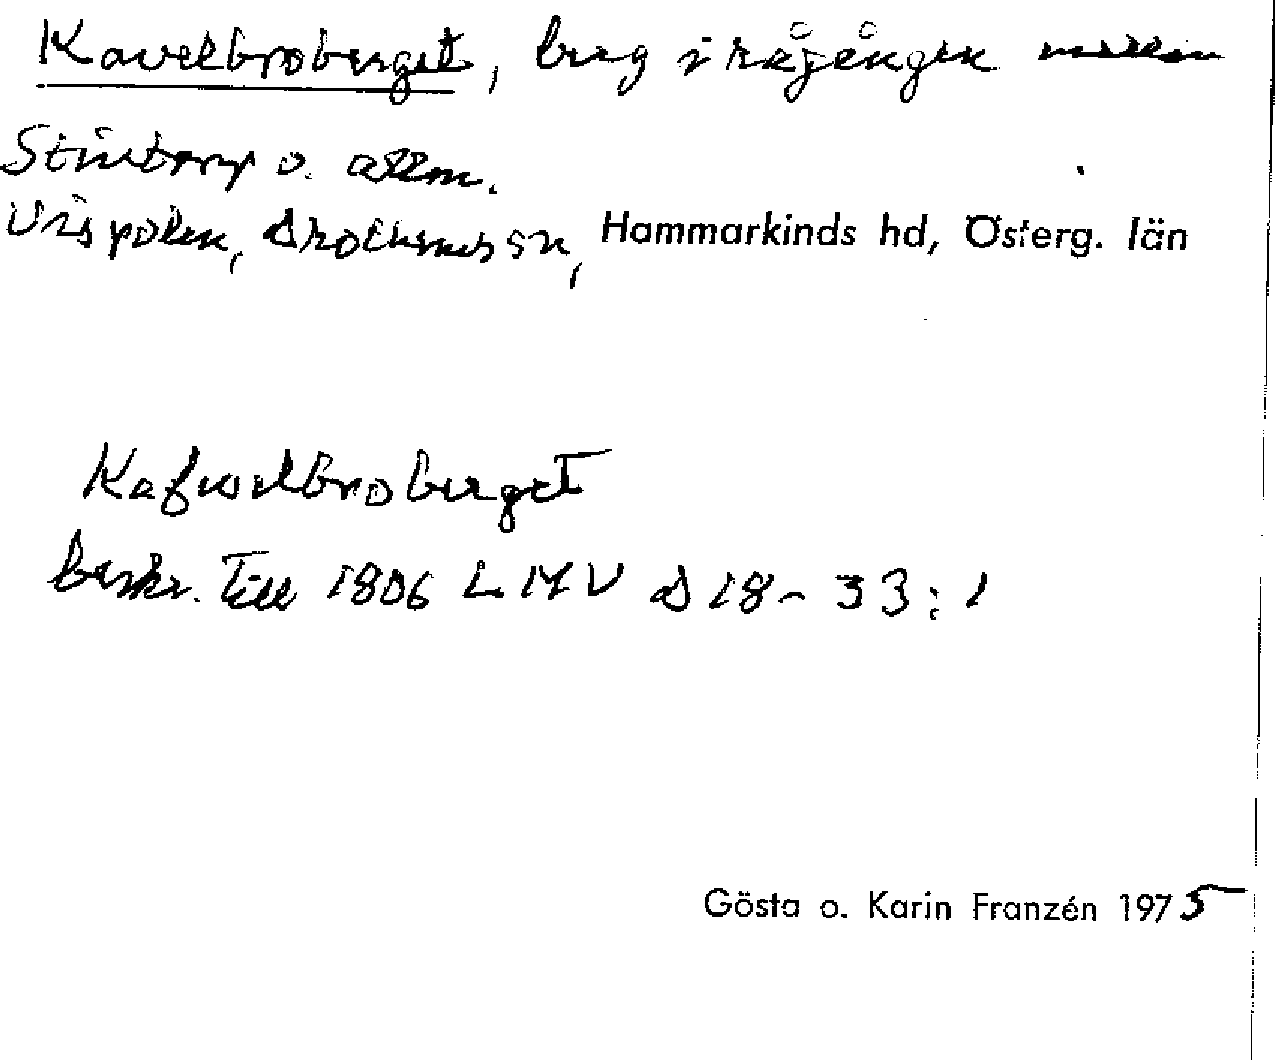 Kavelbroberget, berg i rågången mellan
Stintorp o. allm.
Vispolen, Drothems sn, Hammarkinds hd, Österg. län
Kafwelbroberget
beskr. till 1806 LMV D 18-33:1
Gösta o. Karin Franzén 1975